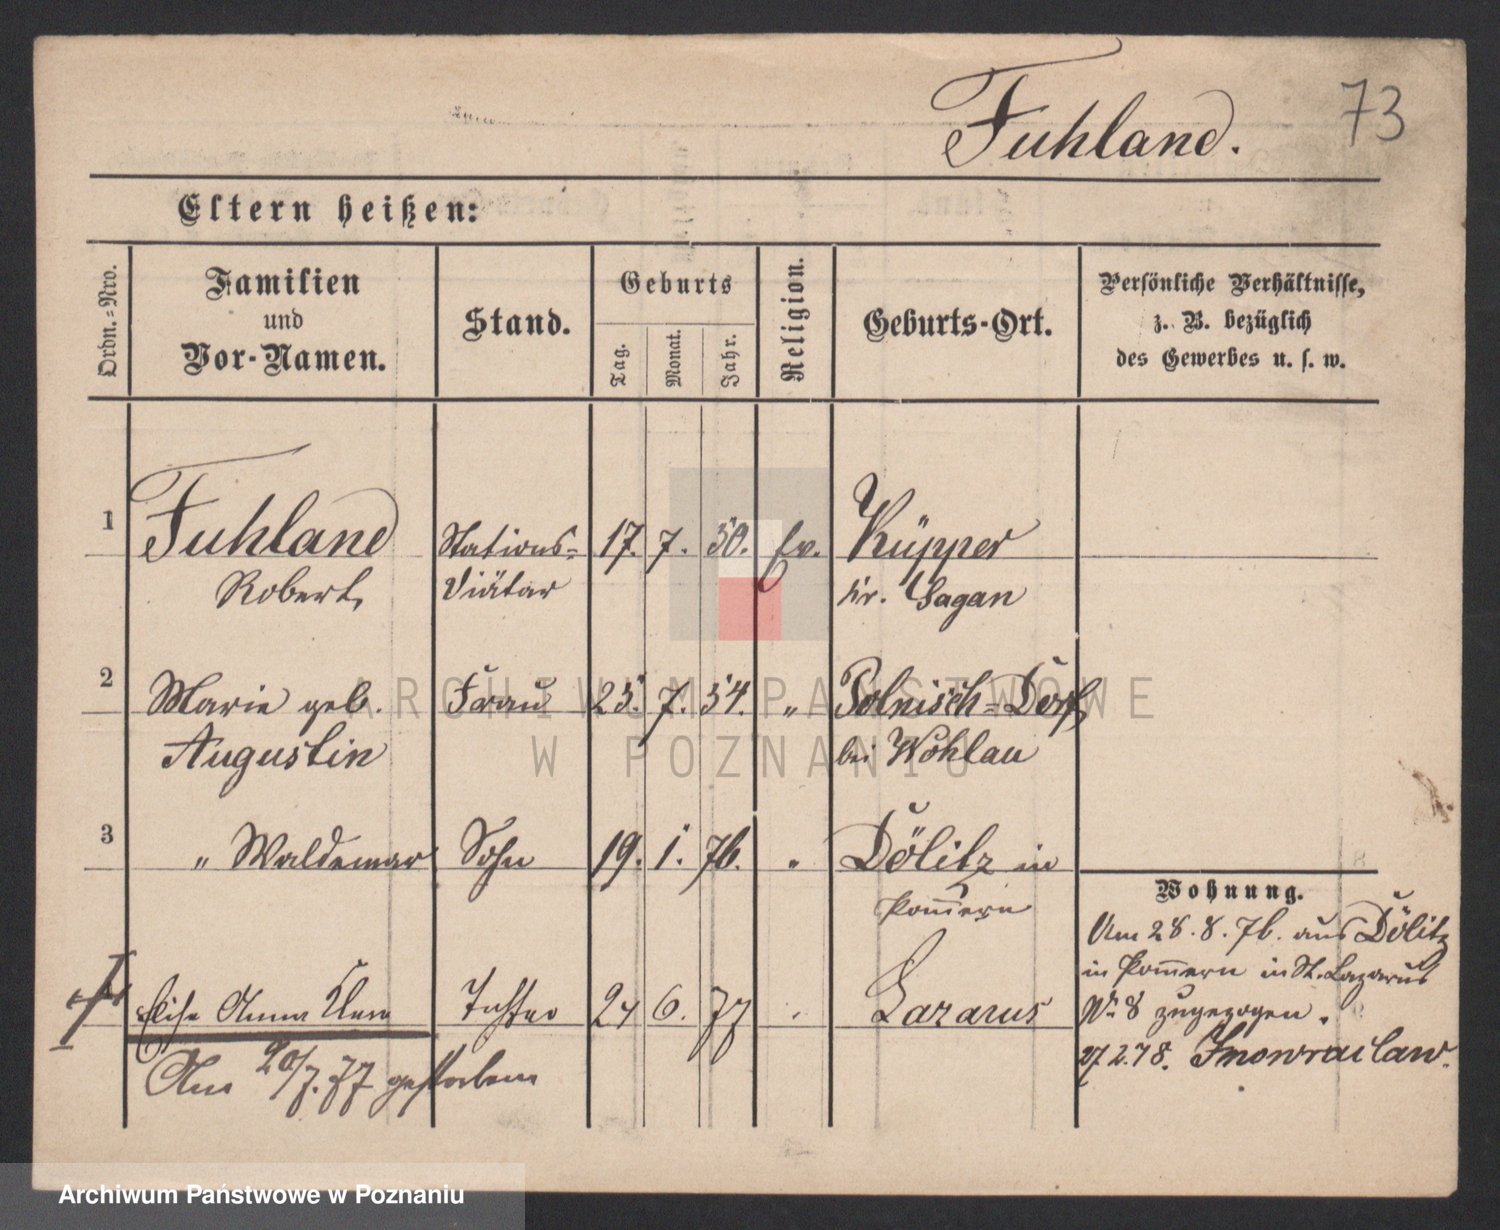 Fuhland. 73
Eltern heißen:
Ordn.-Nro.
Familien
und
Vor-Namen.
Stand.
Geburts
Tag.
Monat.
Jahr.
Religion.
Geburts-Ort.
Persönliche Verhältnisse,
z. B. bezüglich
des Gewerbes u. s. w.
1 Fuhland Stations= 17. 7. 50. Ev. Küpper
Robert, Diätar Kr. Sagan
2 Marie geb. Frau 25. 7. 54. " Polnisch=Dorf
Augustin bei Wohlau
3 " Waldemar Sohn 19. 1. 76. " Dölitz in
Pom̄ern
Elise Anna Clara Tochter 24 6. 77 Lazarus
Am 20/7. 77 gestorben
Wohnung.
Am 28. 8. 76. aus Dölitz
in Pom̄ern in St. Lazarus
No 8 zugezogen.
27.2.78. Inowraclaw.
ARCHIWUM PAŃSTWOWE
W POZNANIU
Archiwum Państwowe w Poznaniu